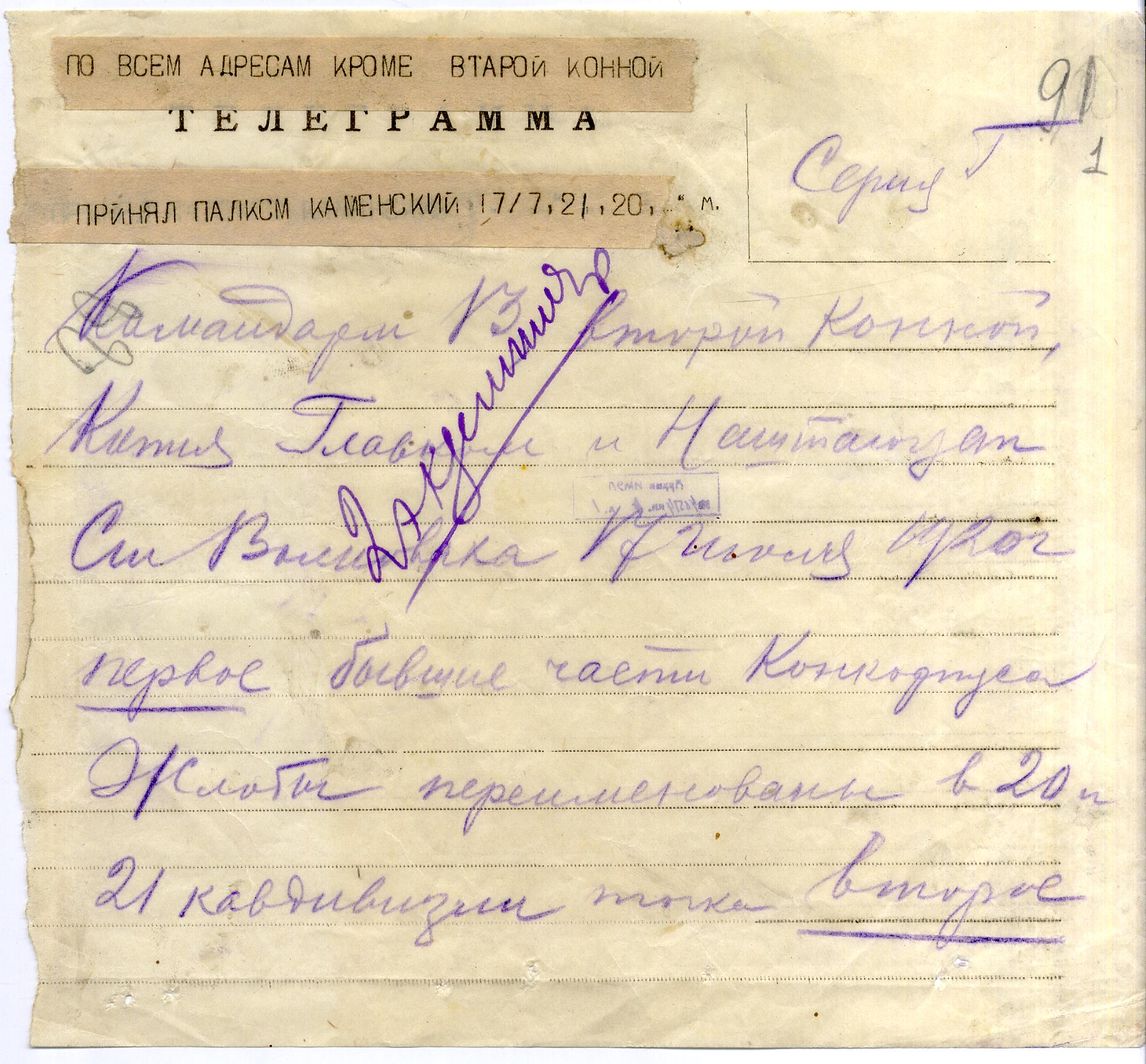 ПО ВСЕМ АДРЕСАМ КРОМЕ ВТАРОЙ КОННОЙ
ТЕЛЕГРАММА
91
1
Серия Г
ПРИНЯЛ ПАЛКСМ КАМЕНСКИЙ 17/7,21,20, м.
Командарм 13 второй Конной,
Копия Главком и Наштаюзап
Ст 17 июля 1920г
первое бывшие части Конкорпуса
Жлобы переименованы в 20 и
21 кавдивизии точка второе